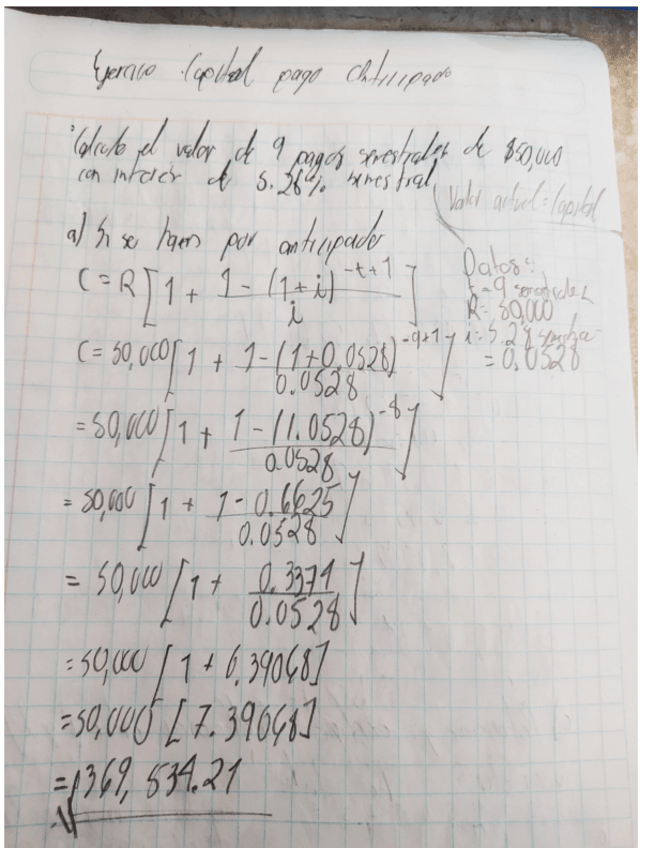 Ejercicio Capital pago Anticipado
Calcule el valor de 9 pagos semestrales de $50,000
con interés de 5.28% semestral
Valor actual = Capital
a) Si se hacen por anticipado
Datos:
t = 9 semestrales
R = 50,000
i = 5.28 semestra
= 0.0528
C = R [ 1 + 1 - (1 + i)^-t+1 / i ]
C = 50,000 [ 1 + 1 - (1+0.0528)^-9+1 / 0.0528 ]
= 50,000 [ 1 + 1 - (1.0528)^-8 / 0.0528 ]
= 50,000 [ 1 + 1 - 0.6625 / 0.0528 ]
= 50,000 [ 1 + 0.3374 / 0.0528 ]
= 50,000 [ 1 + 6.39068 ]
= 50,000 [ 7.39068 ]
= $369,534.21